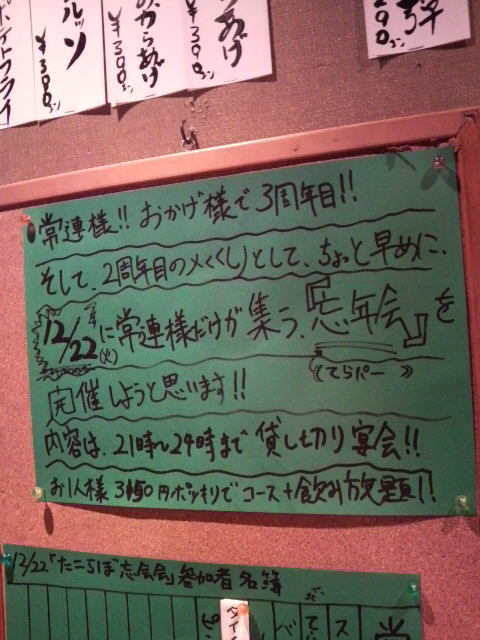 ¥300コン
¥300コン
からあげ
¥300コン
あげ
¥390コン
290コン
常連様!! おかげ様で3周年目!!
そして、2周年目の〆くくりとして、ちょっと早めに、
12/22(火)に常連様だけが集う、『忘年会』を
《てらパー》
開催しようと思います!!
内容は、21時〜24時まで 貸し切り宴会!!
お1人様 3150円ポッキリでコース+飲み放題!!
12/22「たこらぼ忘会会」参加者名簿